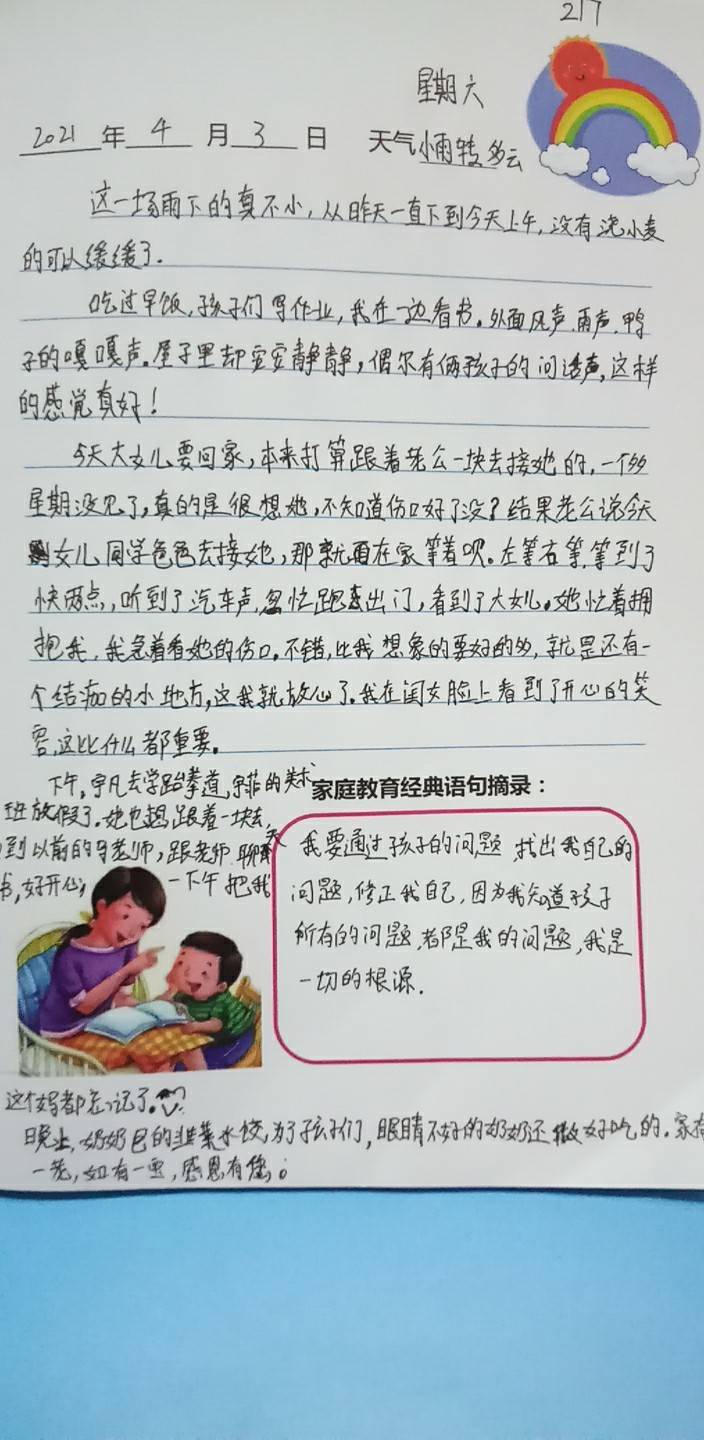 217
星期六
2021年4月3日 天气小雨转多云
这一场雨下的真不小,从昨天一直下到今天上午,没有浇小麦
的可以缓缓了.
吃过早饭,孩子们写作业,我在一边看书。外面风声.雨声.鸭
子的嘎嘎声。屋子里却安安静静,偶尔有俩孩子的问话声,这样
的感觉真好!
今天大女儿要回家,本来打算跟着老公一块去接她的,一个多
星期没见了,真的是很想她,不知道伤口好了没?结果老公说今天
女儿同学爸爸去接她,那就再在家等着呗。左等右等,等到了
快两点,听到了汽车声,忽忙跑出门,看到了大女儿。她忙着拥
抱我,我急着看她的伤口。不错,比我想象的要好的多,就是还有一
个结痂的小地方,这我就放心了.我在闺女脸上看到了开心的笑
容,这比什么都重要。
下午,宇凡去学跆拳道,宇菲的美术
班放假了.她也想跟着一块去,
到以前的马老师,跟老师聊天
书,好开心,一下午把我
这个妈都忘记了。
家庭教育经典语句摘录:
我要通过孩子的问题找出我自己的
问题,修正我自己,因为我知道孩子
所有的问题,都是我的问题,我是
一切的根源.
晚上,奶奶包的韭菜水饺,为了孩子们,眼睛不好的奶奶还做好吃的.家有
一老,如有一宝,感恩有您。